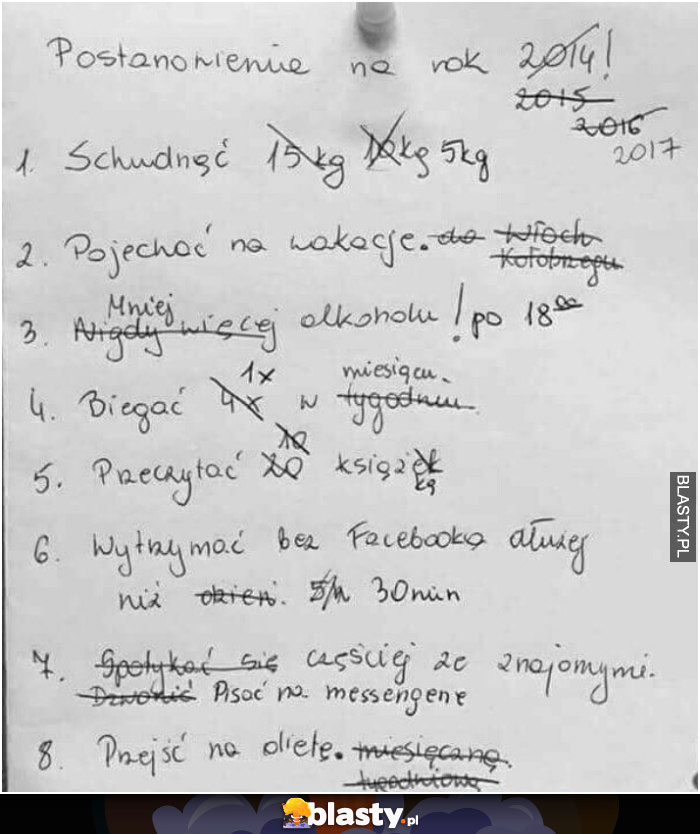 Postanowienia na rok 2014!
2015
2016
2017
1. Schudnąć 15kg 10kg 5kg
2. Pojechać na wakacje. do Włoch
Kołobrzegu
Mniej
3. Nigdy więcej alkoholu! po 18⁰⁰
1x miesiącu.
4. Biegać 4x w tygodniu.
10
5. Przeczytać 20 książek
kę
6. Wytrzymać bez Facebooka dłużej
niż dzień. 5h 30min
7. Spotykać się częściej ze znajomymi.
Dzwonić Pisać na messengerze
8. Przejść na dietę. miesięczną.
tygodniową
BLASTY.PL
blasty.pl